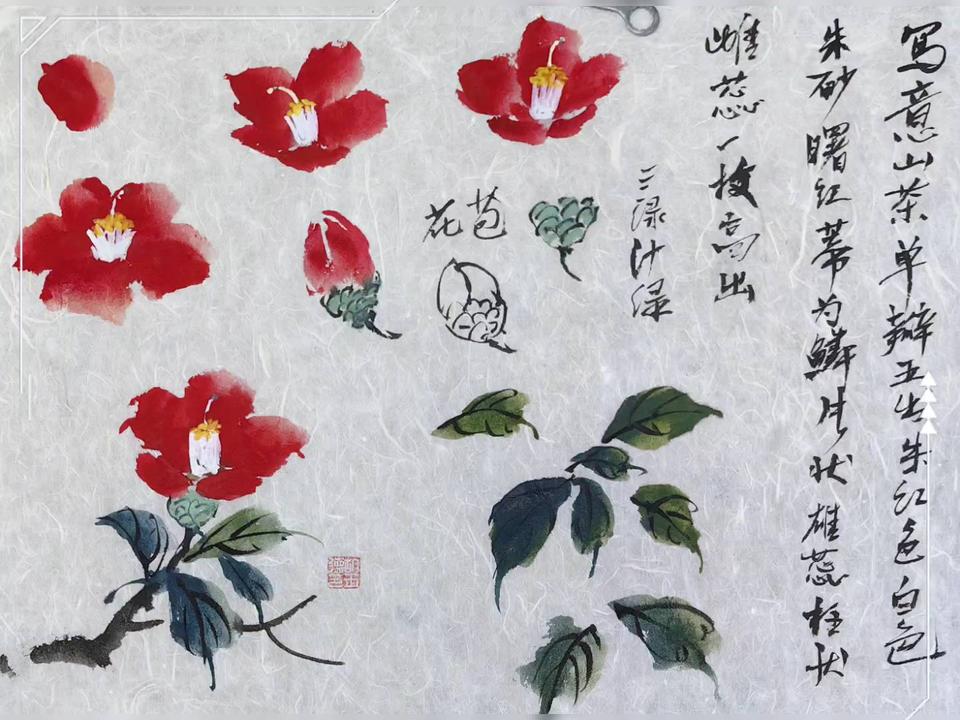 寫意山茶单瓣五出朱红色白色
朱砂曙红蒂为鳞片状雄蕊柱状
雌蕊一枚高出
三绿汁绿
花苞